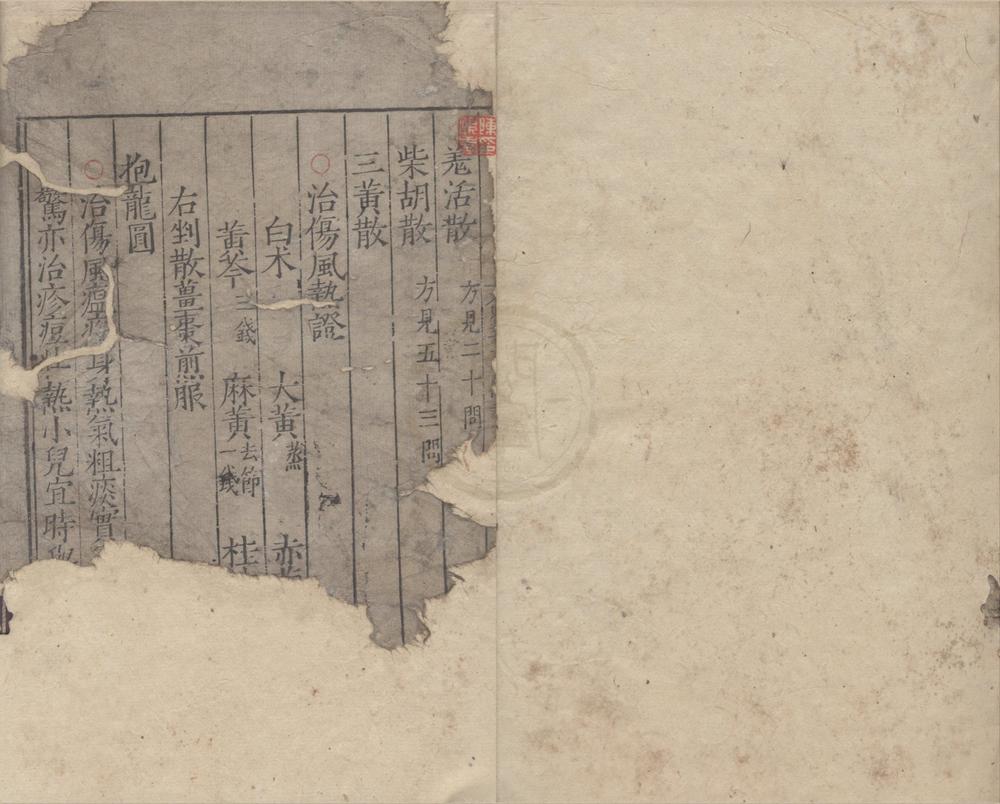 羗活散 方見二十問
柴胡散 方見五十三問
三黃散
○治傷風熱證
白术 大黃蒸 赤
黃芩三錢 麻黃去節一錢 桂
右剉散薑棗煎服
抱龍圓
○治傷風瘟疫身熱氣粗痰實
驚亦治疹痘壯熱小兒宜時與